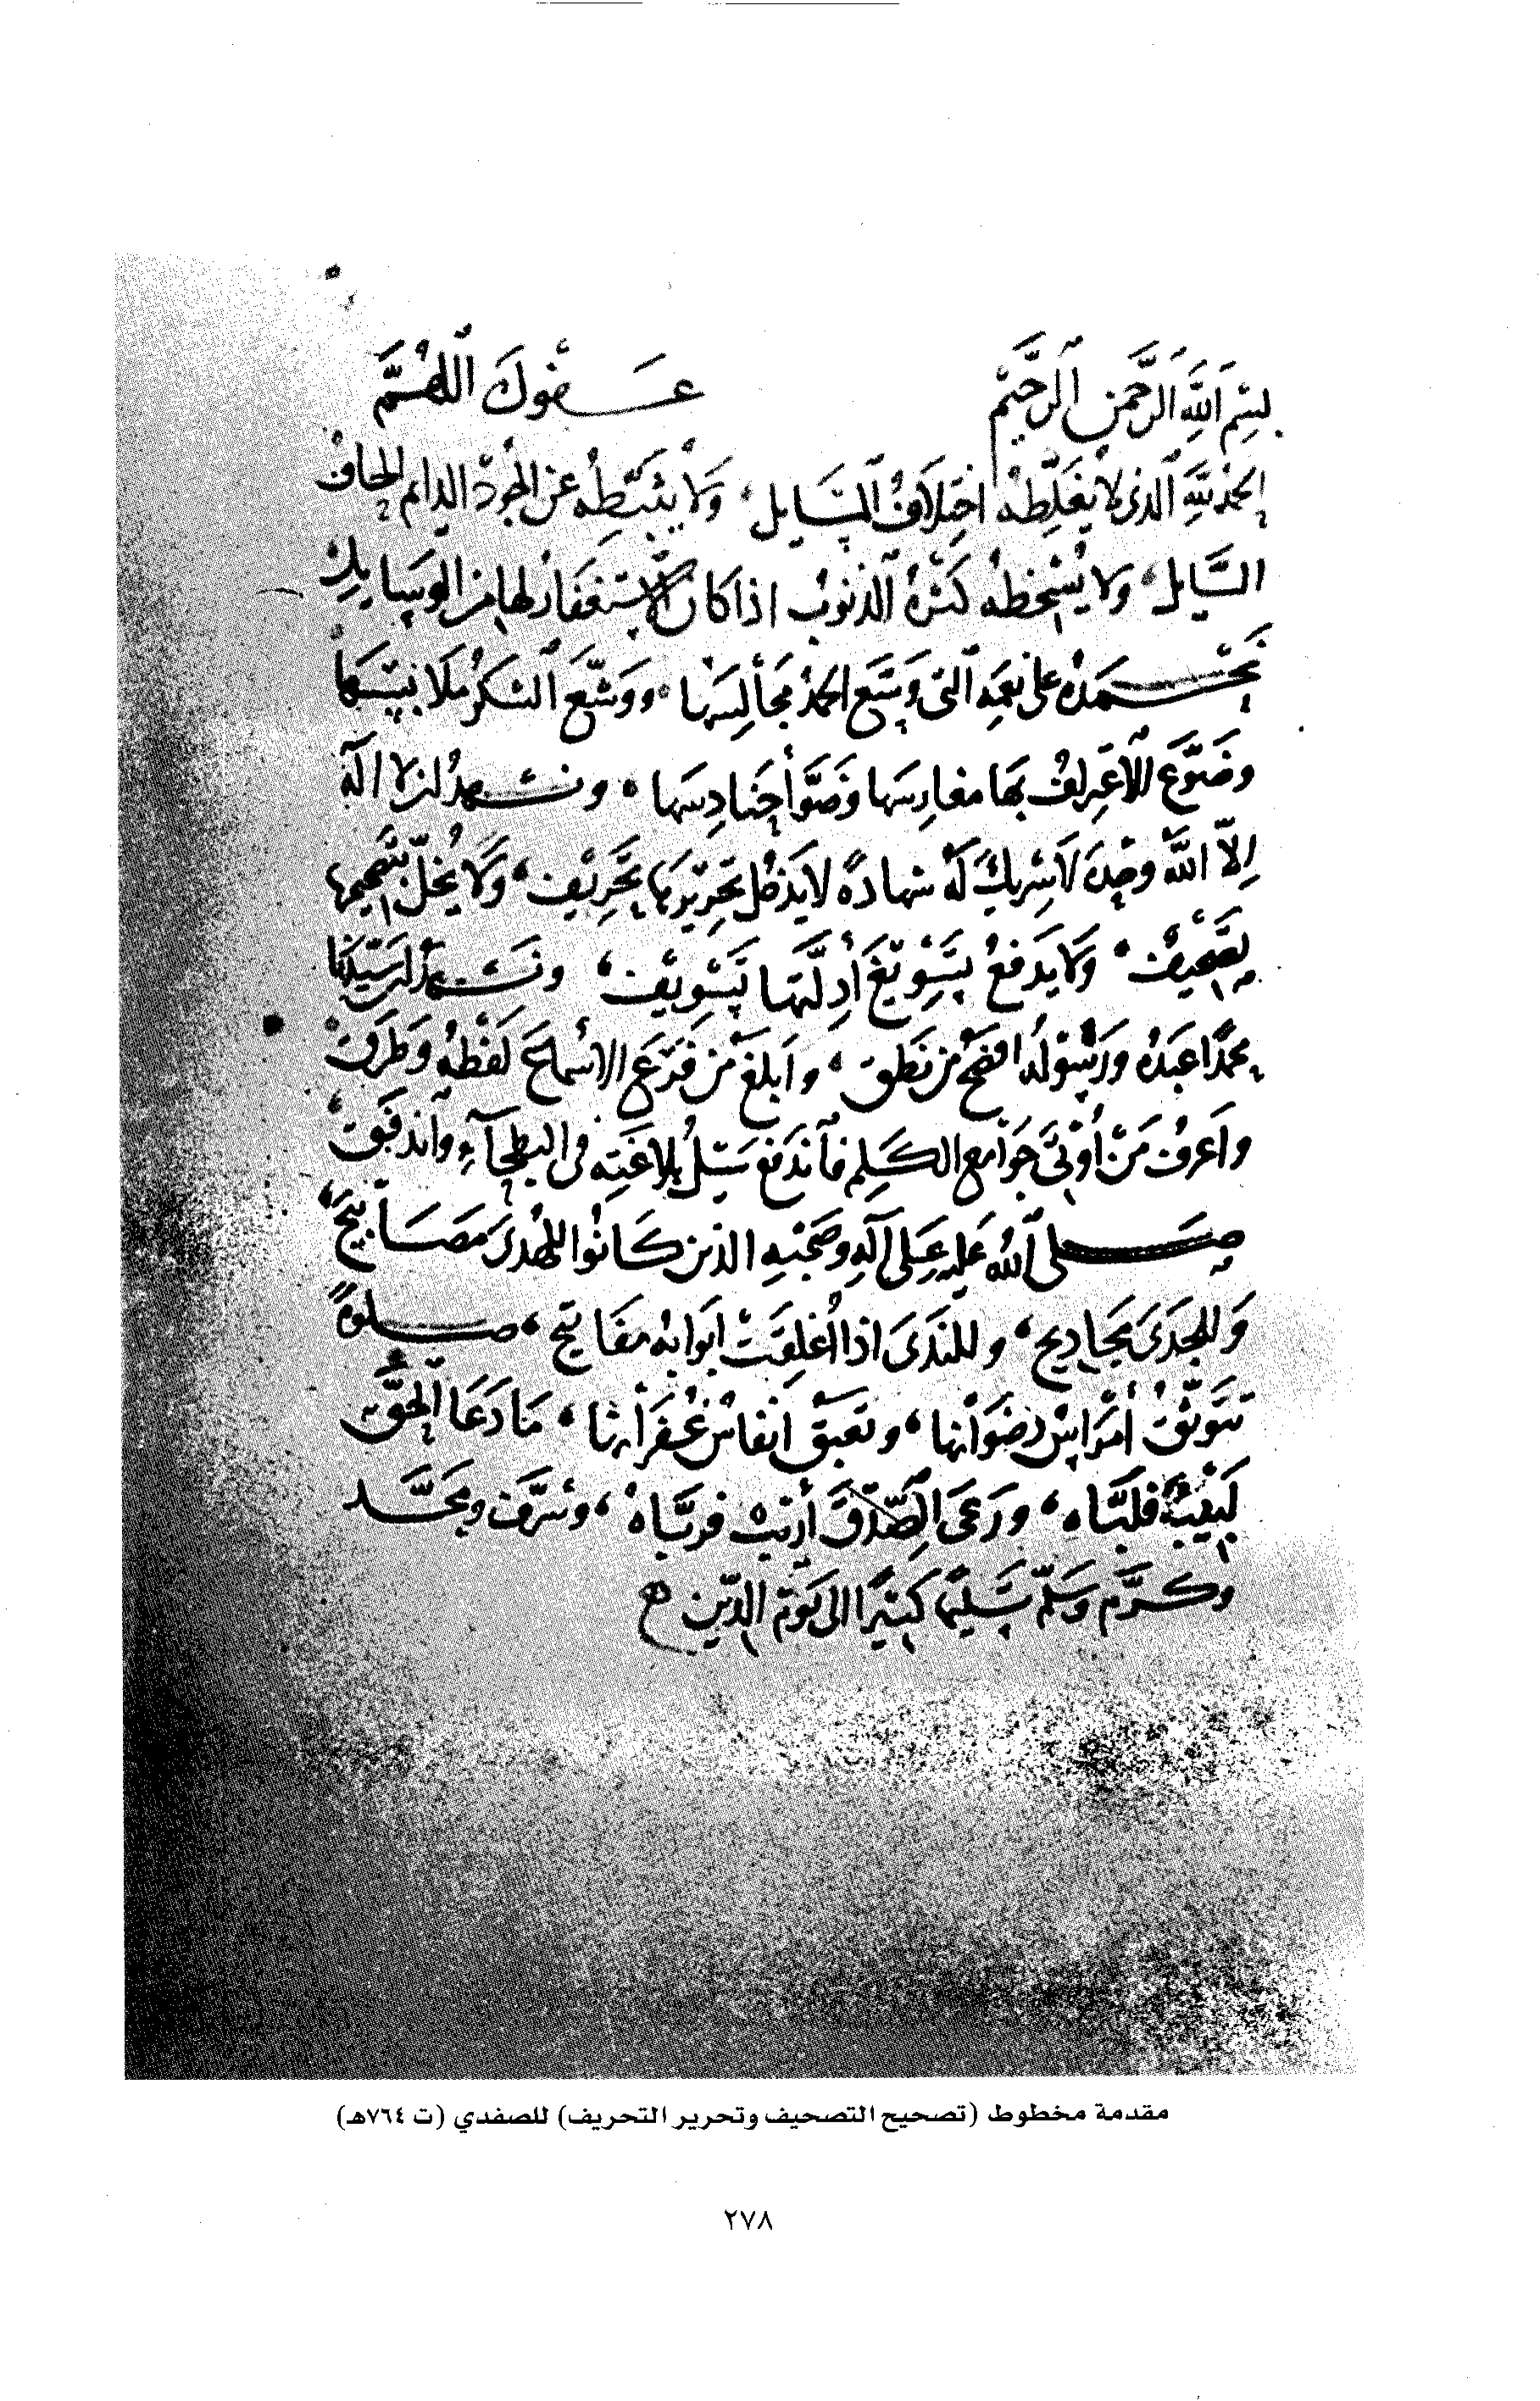 بسم الله الرحمن الرحيم عفوك اللهم
الحمد لله الذي لا يغلطه اختلاف المسايل، ولا يثبطه عن الجود الدايم الحاف
السايل، ولا يسخطه كثرة الذنوب اذا كان الاستغفار لها من الوسايل
نحمده على نعمه التي وسع الحمد مجالسها، ووشع الشكر ملابسها
وضوع الاعتراف بها مغارسها وضوأ حنادسها، ونشهد ان لا اله
إلا الله وحده لا شريك له شهادة لا يدخل تحريرها تحريف، ولا يخل بتصحيحها
تصحيف، ولا يدفع بتسويغ أدلتها تسويف، ونشهد ان سيدنا
محمدا عبده ورسوله افصح من نطق، وابلغ من قرع الاسماع لفظه وطرق
واعرف من أوتي جوامع الكلم فاندفع سيل بلاغته في البطحآء واندفق،
صلى الله عليه وعلى آله وصحبه الذين كانوا للهدى مصابيح،
وللجدى مجاديح، وللندى اذا أغلقت ابوابه مفاتيح، صلوة
تتوثق أمراس رضوانها، وتعبق انفاس غفرانها، ما دعا الحق
فلباه، ورعى الصدق أريب فرباه، وشرف ومجد
وكرم وسلم تسليما كثيرا الى يوم الدين
مقدمة مخطوط (تصحيح التصحيف وتحرير التحريف) للصفدي (ت ٧٦٤هـ)
٢٧٨